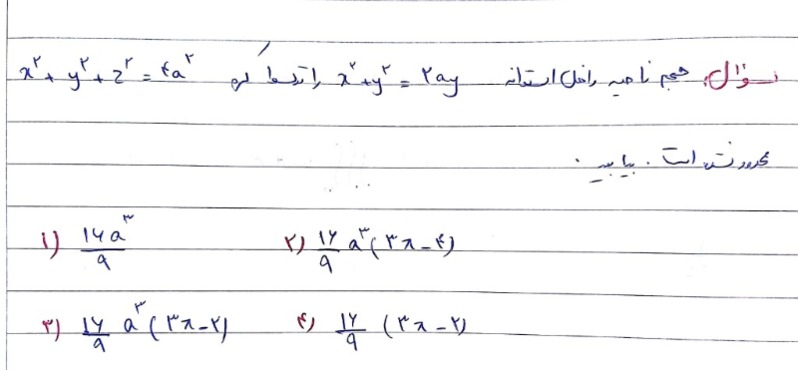 سوال، حجم ناحیه داخل استوانه x² + y² = ۲ay را که توسط کره x² + y² + z² = ۴a²
محدود شده است. بیابید.
۱) ۱۶a³/۹ ۲) ۱۶/۹ a³(۳π-۴)
۳) ۱۶/۹ a³(۳π-۲) ۴) ۱۶/۹ (۳π-۲)